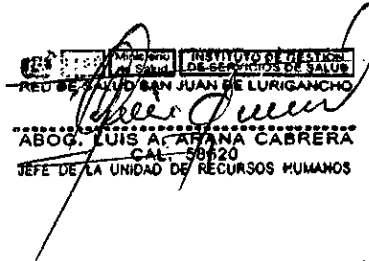 Ministerio de Salud INSTITUTO DE GESTION DE SERVICIOS DE SALUD
RED DE SALUD SAN JUAN DE LURIGANCHO
ABOG. LUIS A. ARANA CABRERA
CAL. 58620
JEFE DE LA UNIDAD DE RECURSOS HUMANOS